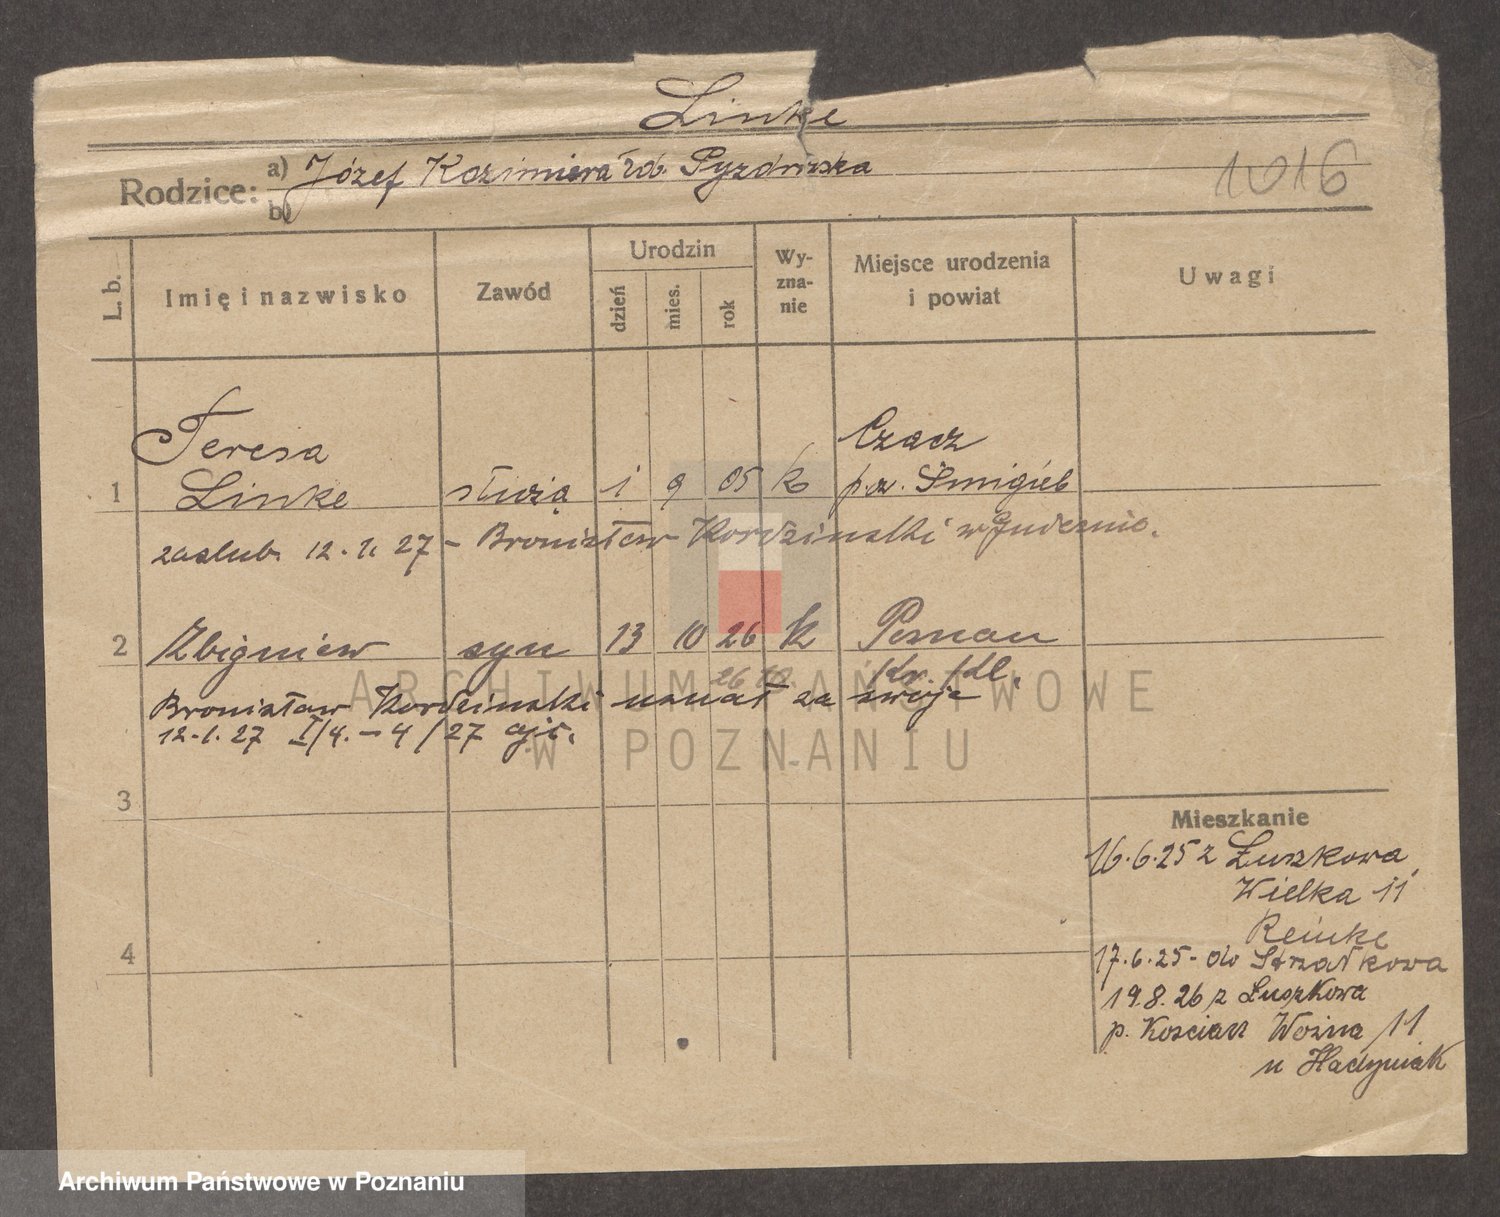 Linke
Rodzice: a) Józef Kazimiera zd. Pyzdrińska
b)
1016
L. b.
Imię i nazwisko
Zawód
Urodzin
dzień
mies.
rok
Wy-
zna-
nie
Miejsce urodzenia
i powiat
Uwagi
Teresa
Czacz
1 Linke służą 1 9 05 k p. w. Śmigieb
zaslub. 12.1.27 - Bronisław Kordzinski w
2 Zbigniew syn 13 10 26 k Poznań
26
Bronisław Kordzinski uznał za swoje
12.1.27 I/4. - 4/27
3
4
Mieszkanie
16.6.25 z Łuszkowa
Wielka 11
Reinke
17.6.25 - do Strzałkowa
19.8.26 z Łuszkowa
p. Kościan Woźna 11
u Hadyniak
ARCHIWUM PAŃSTWOWE
W POZNANIU
Archiwum Państwowe w Poznaniu